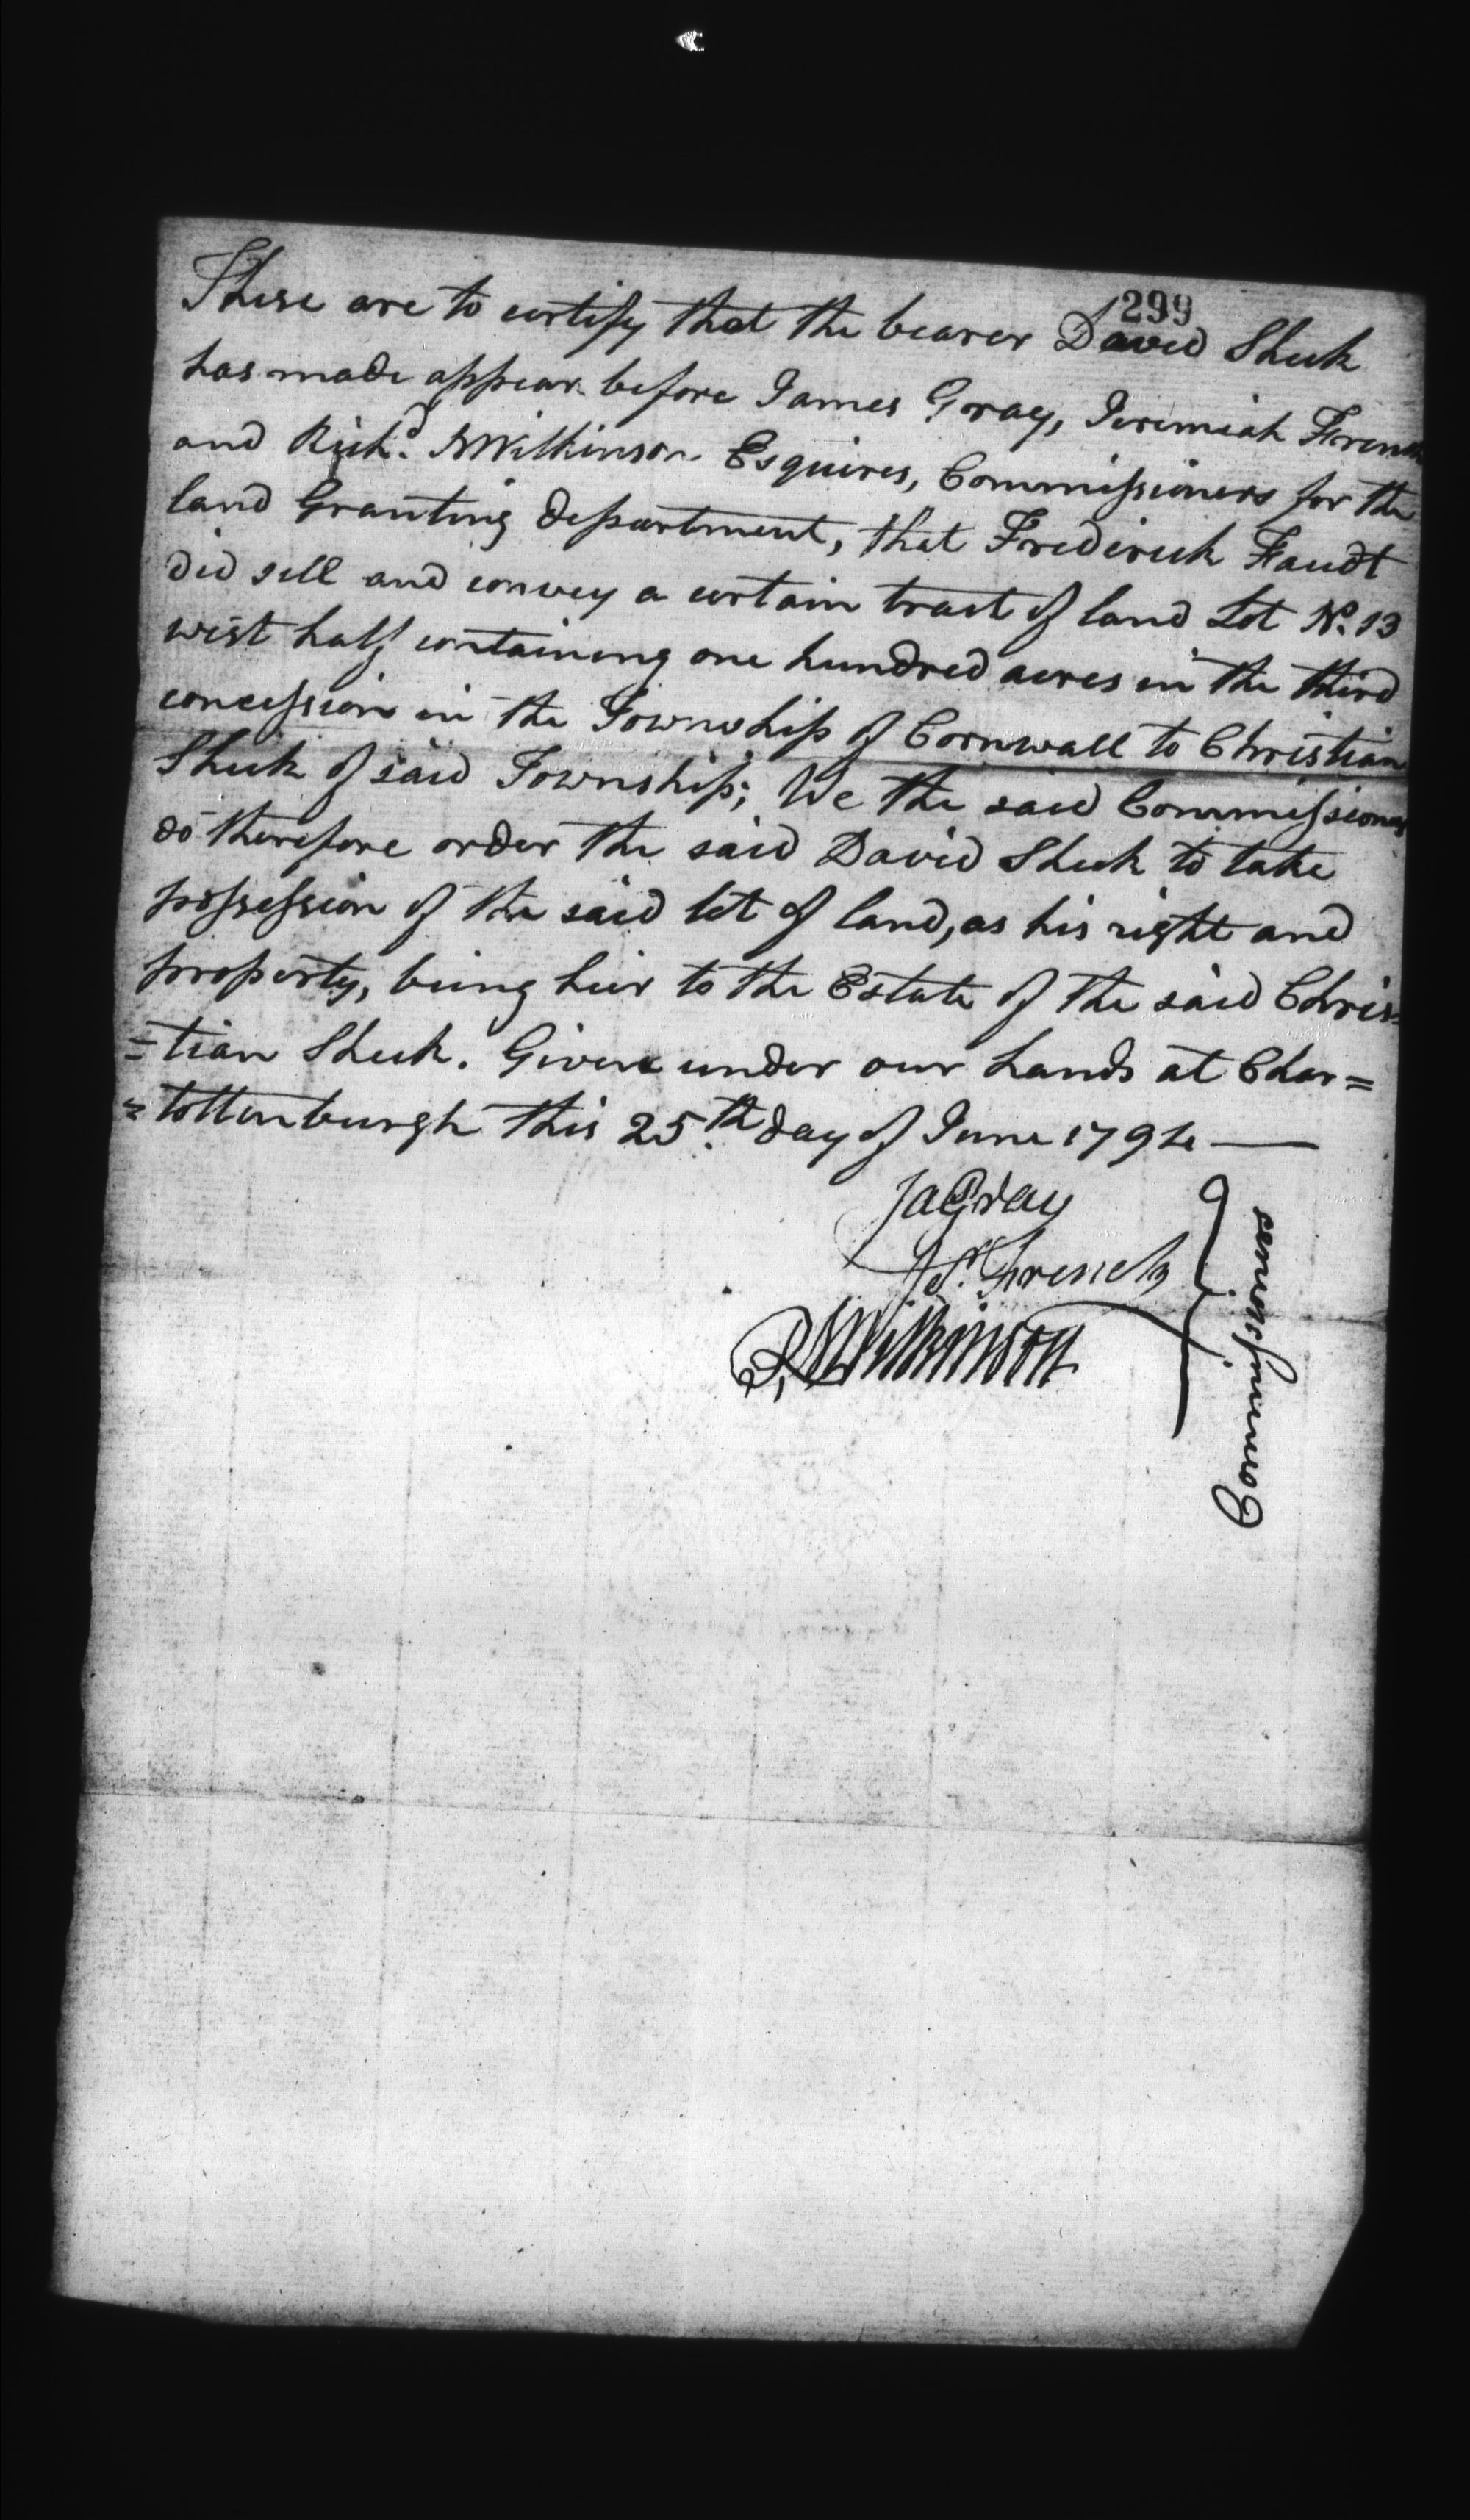 299
These are to certify that the bearer David Sheek
has made appear before James Gray, Jeremiah French
and Rich.d N Wilkinson Esquires, Commissioners for the
land Granting department, that Frederick Faudt
did sell and convey a certain tract of land Lot No. 13
west half containing one hundred acres in the third
concession in the Township of Cornwall to Christian
Sheek of said Township; We the said Commissioners
do therefore order the said David Sheek to take
possession of the said lot of land, as his right and
property, being heir to the Estate of the said Chris=
=tian Sheek. Given under our hands at Char=
=lottenburgh this 25.th day of June 1794
Ja Gray
Jer. French
R, N Wilkinson
Commissioners